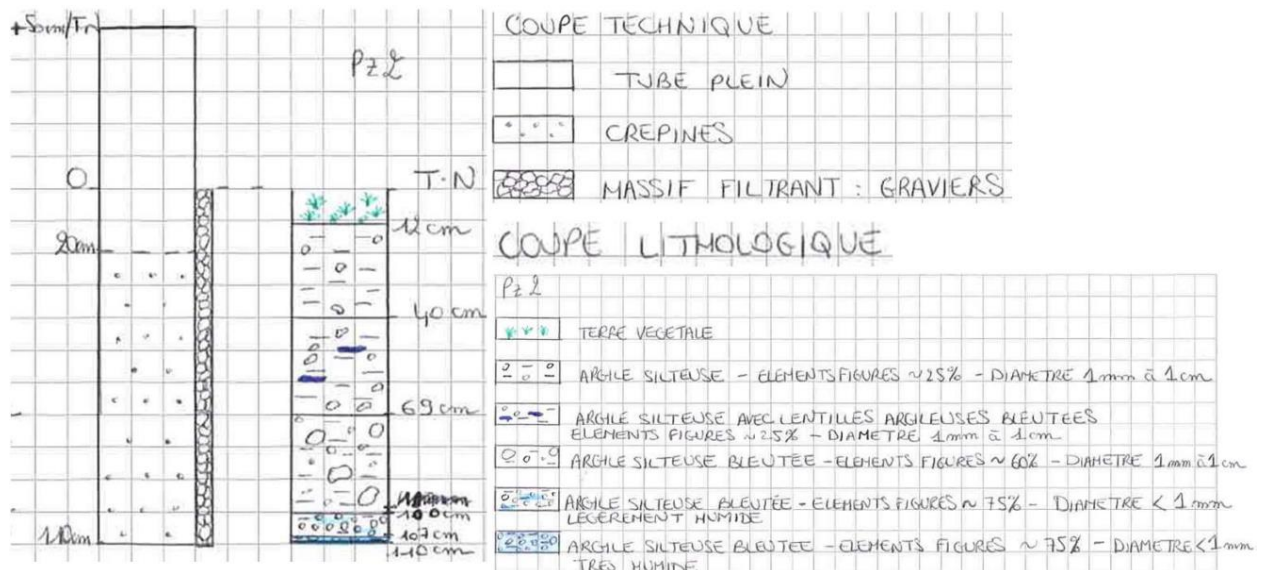 +50cm/Tn
Pz 2
0
T.N
12 cm
20cm
40 cm
69 cm
100cm
107cm
110cm
110cm
COUPE TECHNIQUE
TUBE PLEIN
CREPINES
MASSIF FILTRANT : GRAVIERS
COUPE LITHOLOGIQUE
Pz 2
TERRE VEGETALE
ARGILE SILTEUSE - ELEMENTS FIGURES ~25% - DIAMETRE 1mm à 1cm
ARGILE SILTEUSE AVEC LENTILLES ARGILEUSES BLEUTEES
ELEMENTS FIGURES ~25% - DIAMETRE 1mm à 1cm
ARGILE SILTEUSE BLEUTÉE - ELEMENTS FIGURES ~ 60% - DIAMETRE 1mm à 1cm
ARGILE SILTEUSE BLEUTÉE - ELEMENTS FIGURES ~ 75% - DIAMETRE < 1mm
LEGEREMENT HUMIDE
ARGILE SILTEUSE BLEUTEE - ELEMENTS FIGURES ~ 75% - DIAMETRE < 1mm
TRES HUMIDE